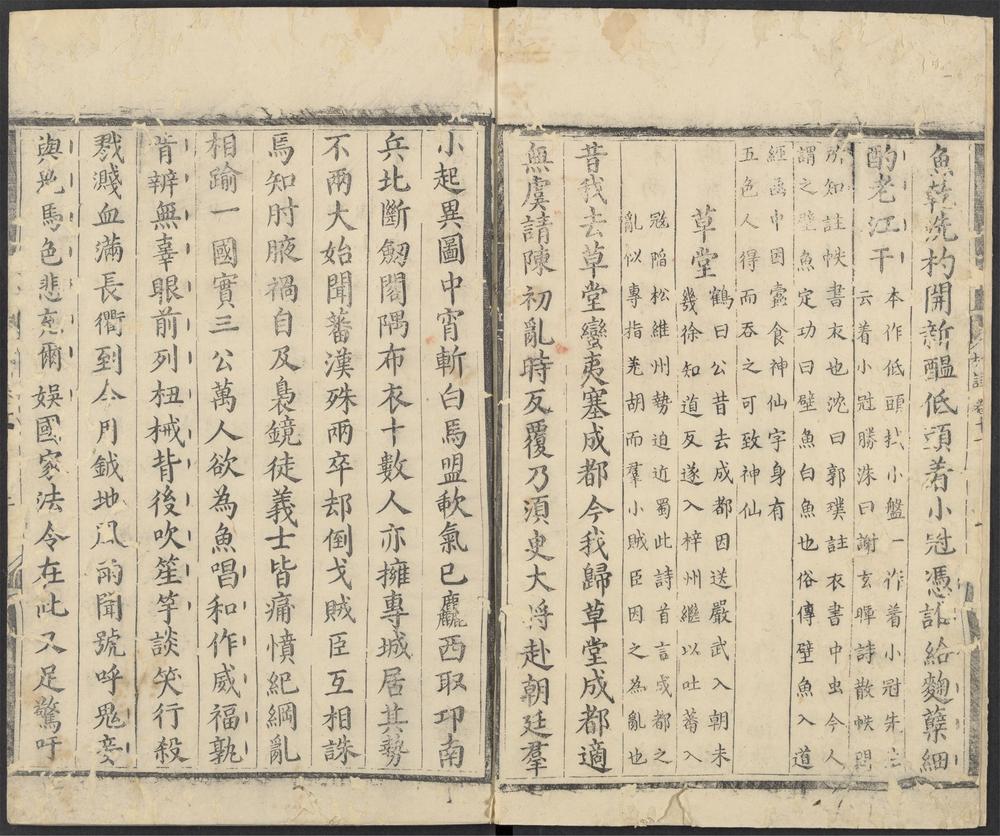 魚乾洗杓開新醖低頭着小冠憑誰給麴蘖細
酌老江干
本作低頭拭小盤一作着小冠朱
云着小冠勝洙曰謝玄暉詩散帙問
所知註帙書衣也沈曰郭璞註衣書中虫今人
謂之壁魚定功曰壁魚白魚也俗傳壁魚入道
經函中因蠧食神仙字身有
五色人得而吞之可致神仙
草堂
鶴曰公昔去成都因送嚴武入朝未
幾徐知道反遂入梓州繼以吐蕃入
冦陷松維州勢迫近蜀此詩首言成都之
亂似專指羌胡而羣小賊臣因之為亂也
昔我去草堂蠻夷塞成都今我歸草堂成都適
無虞請陳初亂時反覆乃須臾大将赴朝廷羣
小起異圖中宵斬白馬盟歃氣已麤西取邛南
兵北斷劒閣隅布衣十數人亦擁專城居其勢
不兩大始聞蕃漢殊兩卒却倒戈賊臣互相誅
焉知肘腋禍自及梟鏡徒義士皆痛憤紀綱亂
相踰一國實三公萬人欲為魚唱和作威福孰
肯辨無辜眼前列杻械背後吹笙竽談笑行殺
戮濺血滿長衢到今用鉞地風雨聞號呼鬼妾
與鬼馬色悲充爾娛國家法令在此又足驚吁